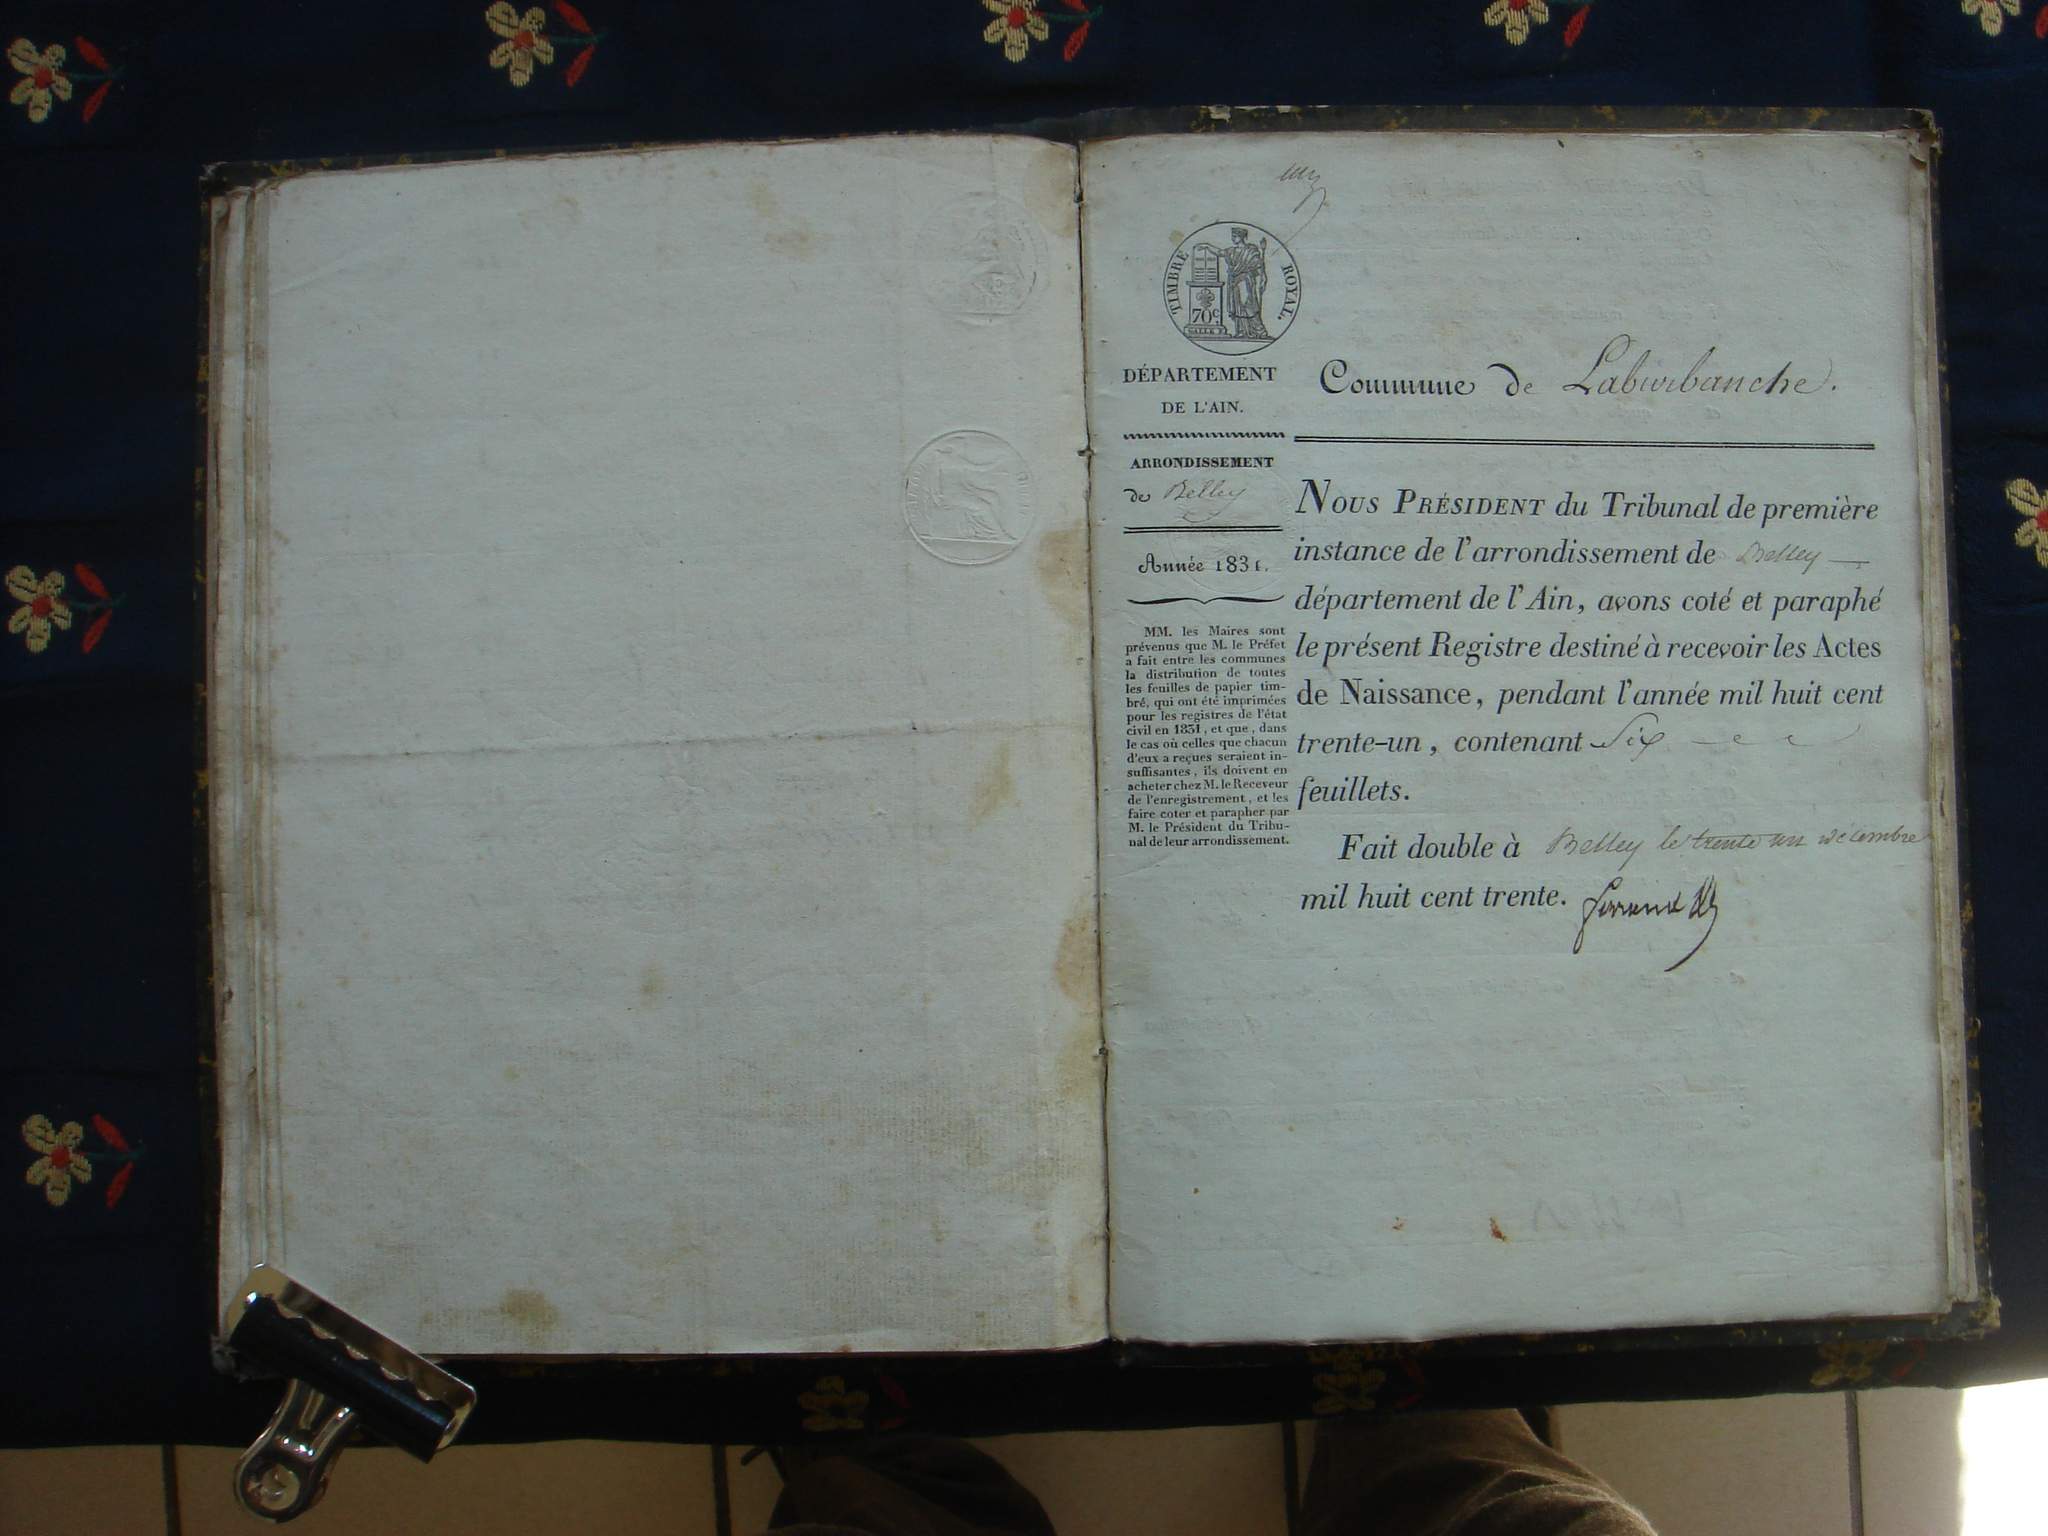 un
TIMBRE ROYAL.
70 C.
DÉPARTEMENT
DE L'AIN.
Commune de Laburbanche.
ARRONDISSEMENT
de Belley
Année 1831.
MM. les Maires sont
prévenus que M. le Préfet
a fait entre les communes
la distribution de toutes
les feuilles de papier tim-
bré, qui ont été imprimées
pour les registres de l'état
civil en 1831, et que, dans
le cas où celles que chacun
d'eux a reçues seraient in-
suffisantes, ils doivent en
acheter chez M. le Receveur
de l'enregistrement, et les
faire coter et parapher par
M. le Président du Tribu-
nal de leur arrondissement.
NOUS PRÉSIDENT du Tribunal de première
instance de l'arrondissement de Belley
département de l'Ain, avons coté et paraphé
le présent Registre destiné à recevoir les Actes
de Naissance, pendant l'année mil huit cent
trente-un, contenant Six
feuillets.
Fait double à Belley le trente un décembre
mil huit cent trente.